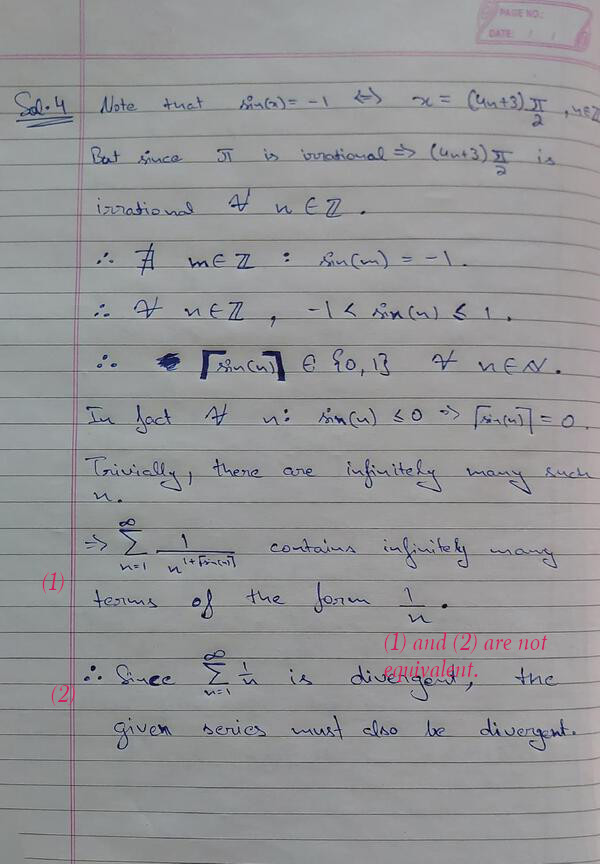 PAGE NO.:
DATE: / /
Sol.4 Note that sin(x) = -1 ⇔ x = (4n+3)π/2, n∈ℤ
But since π is irrational ⇒ (4n+3)π/2 is
irrational ∀ n ∈ ℤ.
∴ ∄ m∈ℤ : sin(m) = -1.
∴ ∀ n∈ℤ, -1 < sin(n) ≤ 1.
∴ ⌈sin(n)⌉ ∈ {0,1} ∀ n∈ℕ.
In fact ∀ n: sin(n) ≤ 0 ⇒ ⌈sin(n)⌉ = 0.
Trivially, there are infinitely many such
n.
⇒ ∑_{n=1}^{∞} 1/n^{1+⌈sin(n)⌉} contains infinitely many
(1)
terms of the form 1/n.
(1) and (2) are not
equivalent.
(2)
∴ Since ∑_{n=1}^{∞} 1/n is divergent, the
given series must also be divergent.